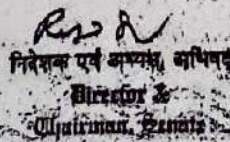 निदेशक एवं अध्यक्ष, अधिषद्
Director &
Chairman, Senate